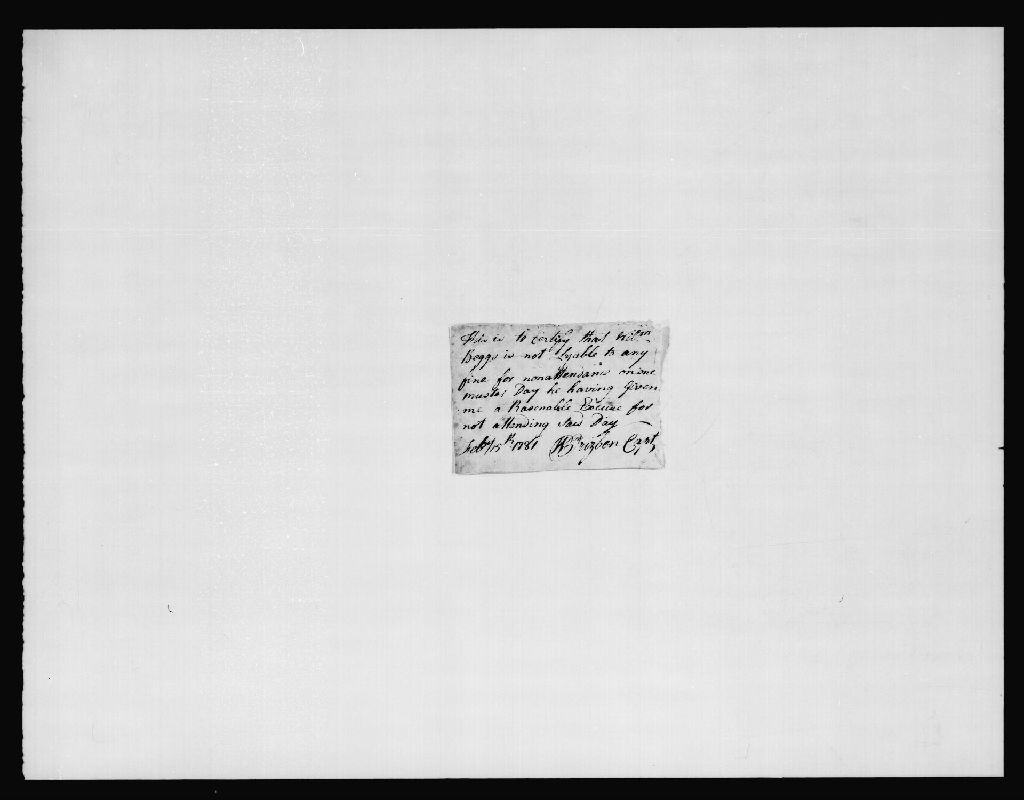 This is to certify that Willm
Beggs is not Lyable to any
fine for nonattendance on one
muster Day he having Given
me a Rasenable Excuse for
not attending Said Day
Febry 15th 1781 Brogden Capt